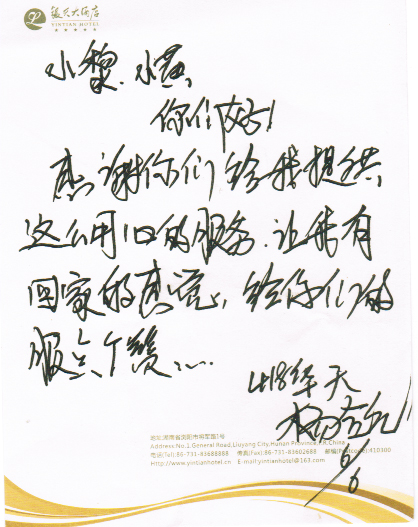 银天大酒店
YINTIAN HOTEL
小黎、小黄，
你们好！
感谢你们给我提供
这么用心的服务.让我有
回家的感觉，给你们的
服务个赞……
华天
6/6
地址:湖南省浏阳市将军路1号
Address:No.1,General Road,Liuyang City,Hunan Province,P.R.China
电话(Tel):86-731-83688888 传真(Fax):86-731-83602688 邮编(Postcode):410300
Http://www.yintianhotel.cn E-mail:yintianhotel@163.com